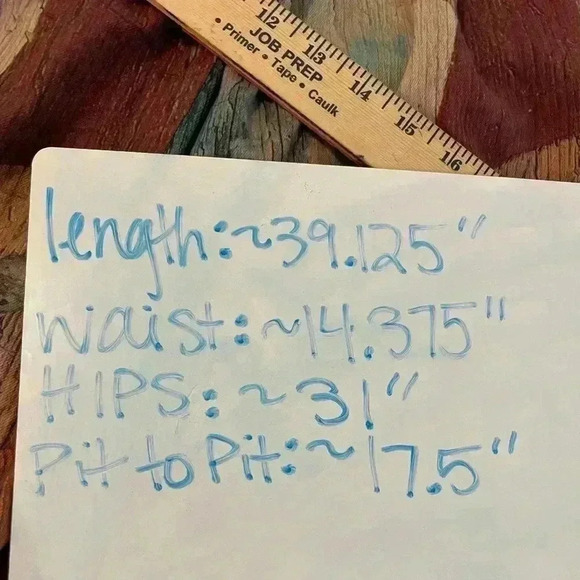 12 13 14 15 16
JOB PREP
• Primer • Tape • Caulk
length: ~39.125"
waist: ~14.375"
HIPS: ~31"
Pit to Pit: ~17.5"